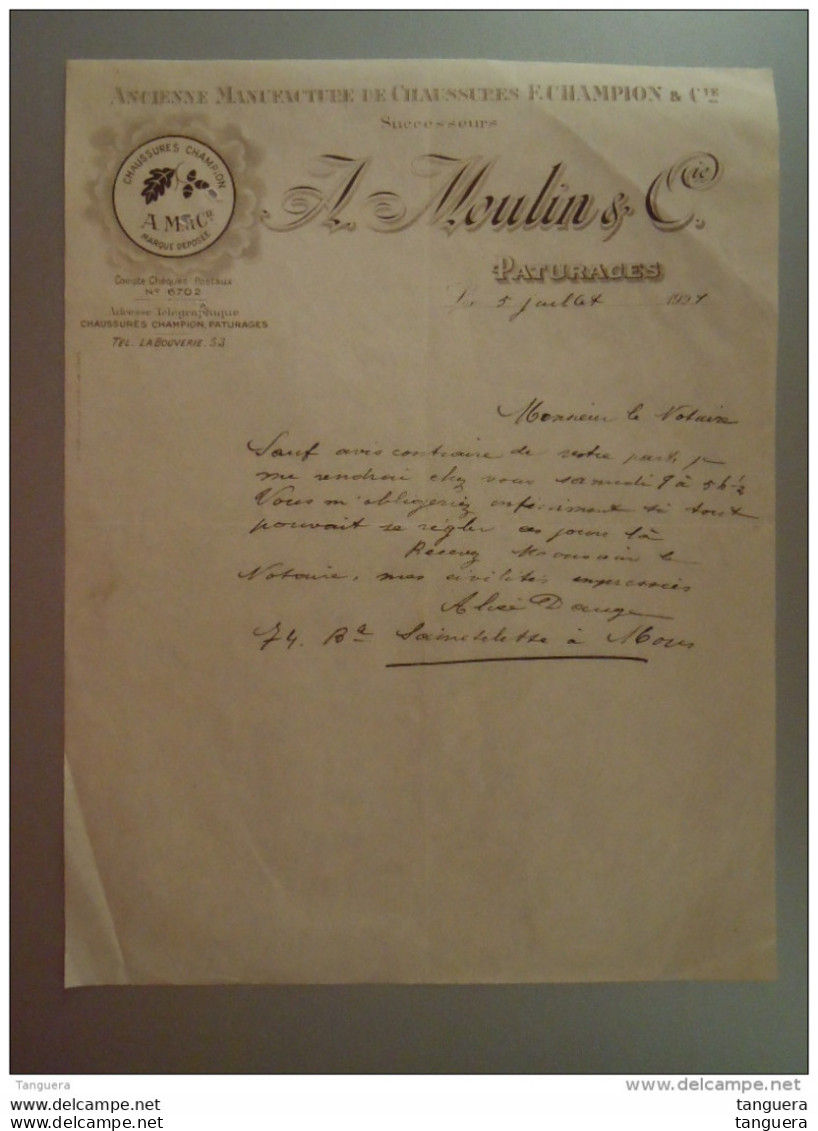 ANCIENNE MANUFACTURE DE CHAUSSURES F. CHAMPION & Cie
Successeurs
A. Moulin & Cie.
PATURAGES
CHAUSSURES CHAMPION
A. M. & Co
MARQUE DÉPOSÉE
Compte Chèques Postaux
No 6702
Adresse Télégraphique
CHAUSSURES CHAMPION, PATURAGES
TEL. LA BOUVERIE. 53
le 5 juillet 1927
Monsieur le Notaire
Sauf avis contraire de votre part, je
me rendrai chez vous samedi 9 à 5h ½
Vous m'obligeriez infiniment si tout
pouvait se régler ces jours là
Recevez Monsieur le
Notaire, mes civilités empressées
74. Bd Sainctelette à Mons
Tanguera
delcampe.net
tanguera
tanguera
tanguera
tanguera